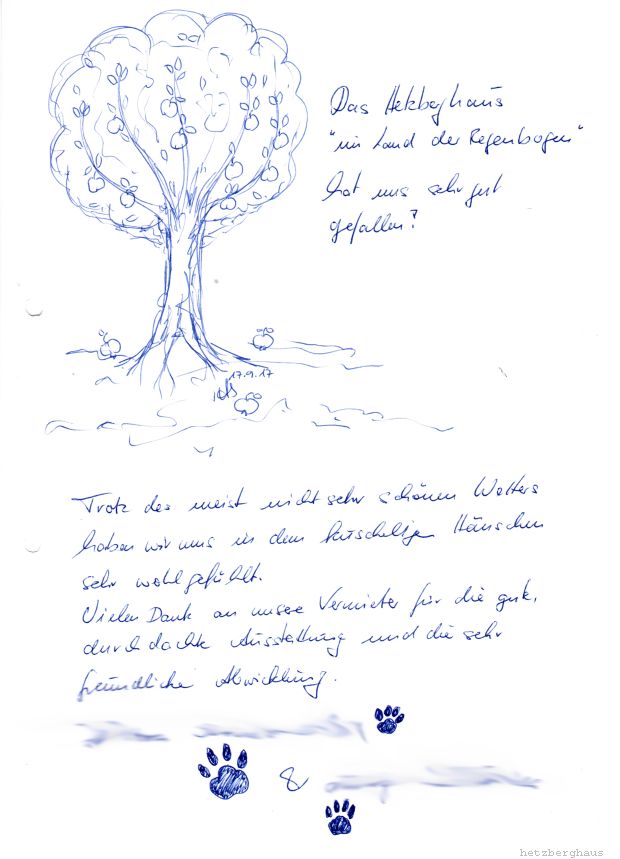 Das Hetzberghaus
"im Land der Regenbogen"
hat uns sehr gut
gefallen!
17.9.17
Trotz des meist nicht sehr schönen Wetters
haben wir uns in dem kuscheligen Häuschen
sehr wohlgefühlt.
Vielen Dank an unsere Vermieter für die gute,
durchdachte Ausstattung und die sehr
freundliche Abwicklung.
&
hetzberghaus